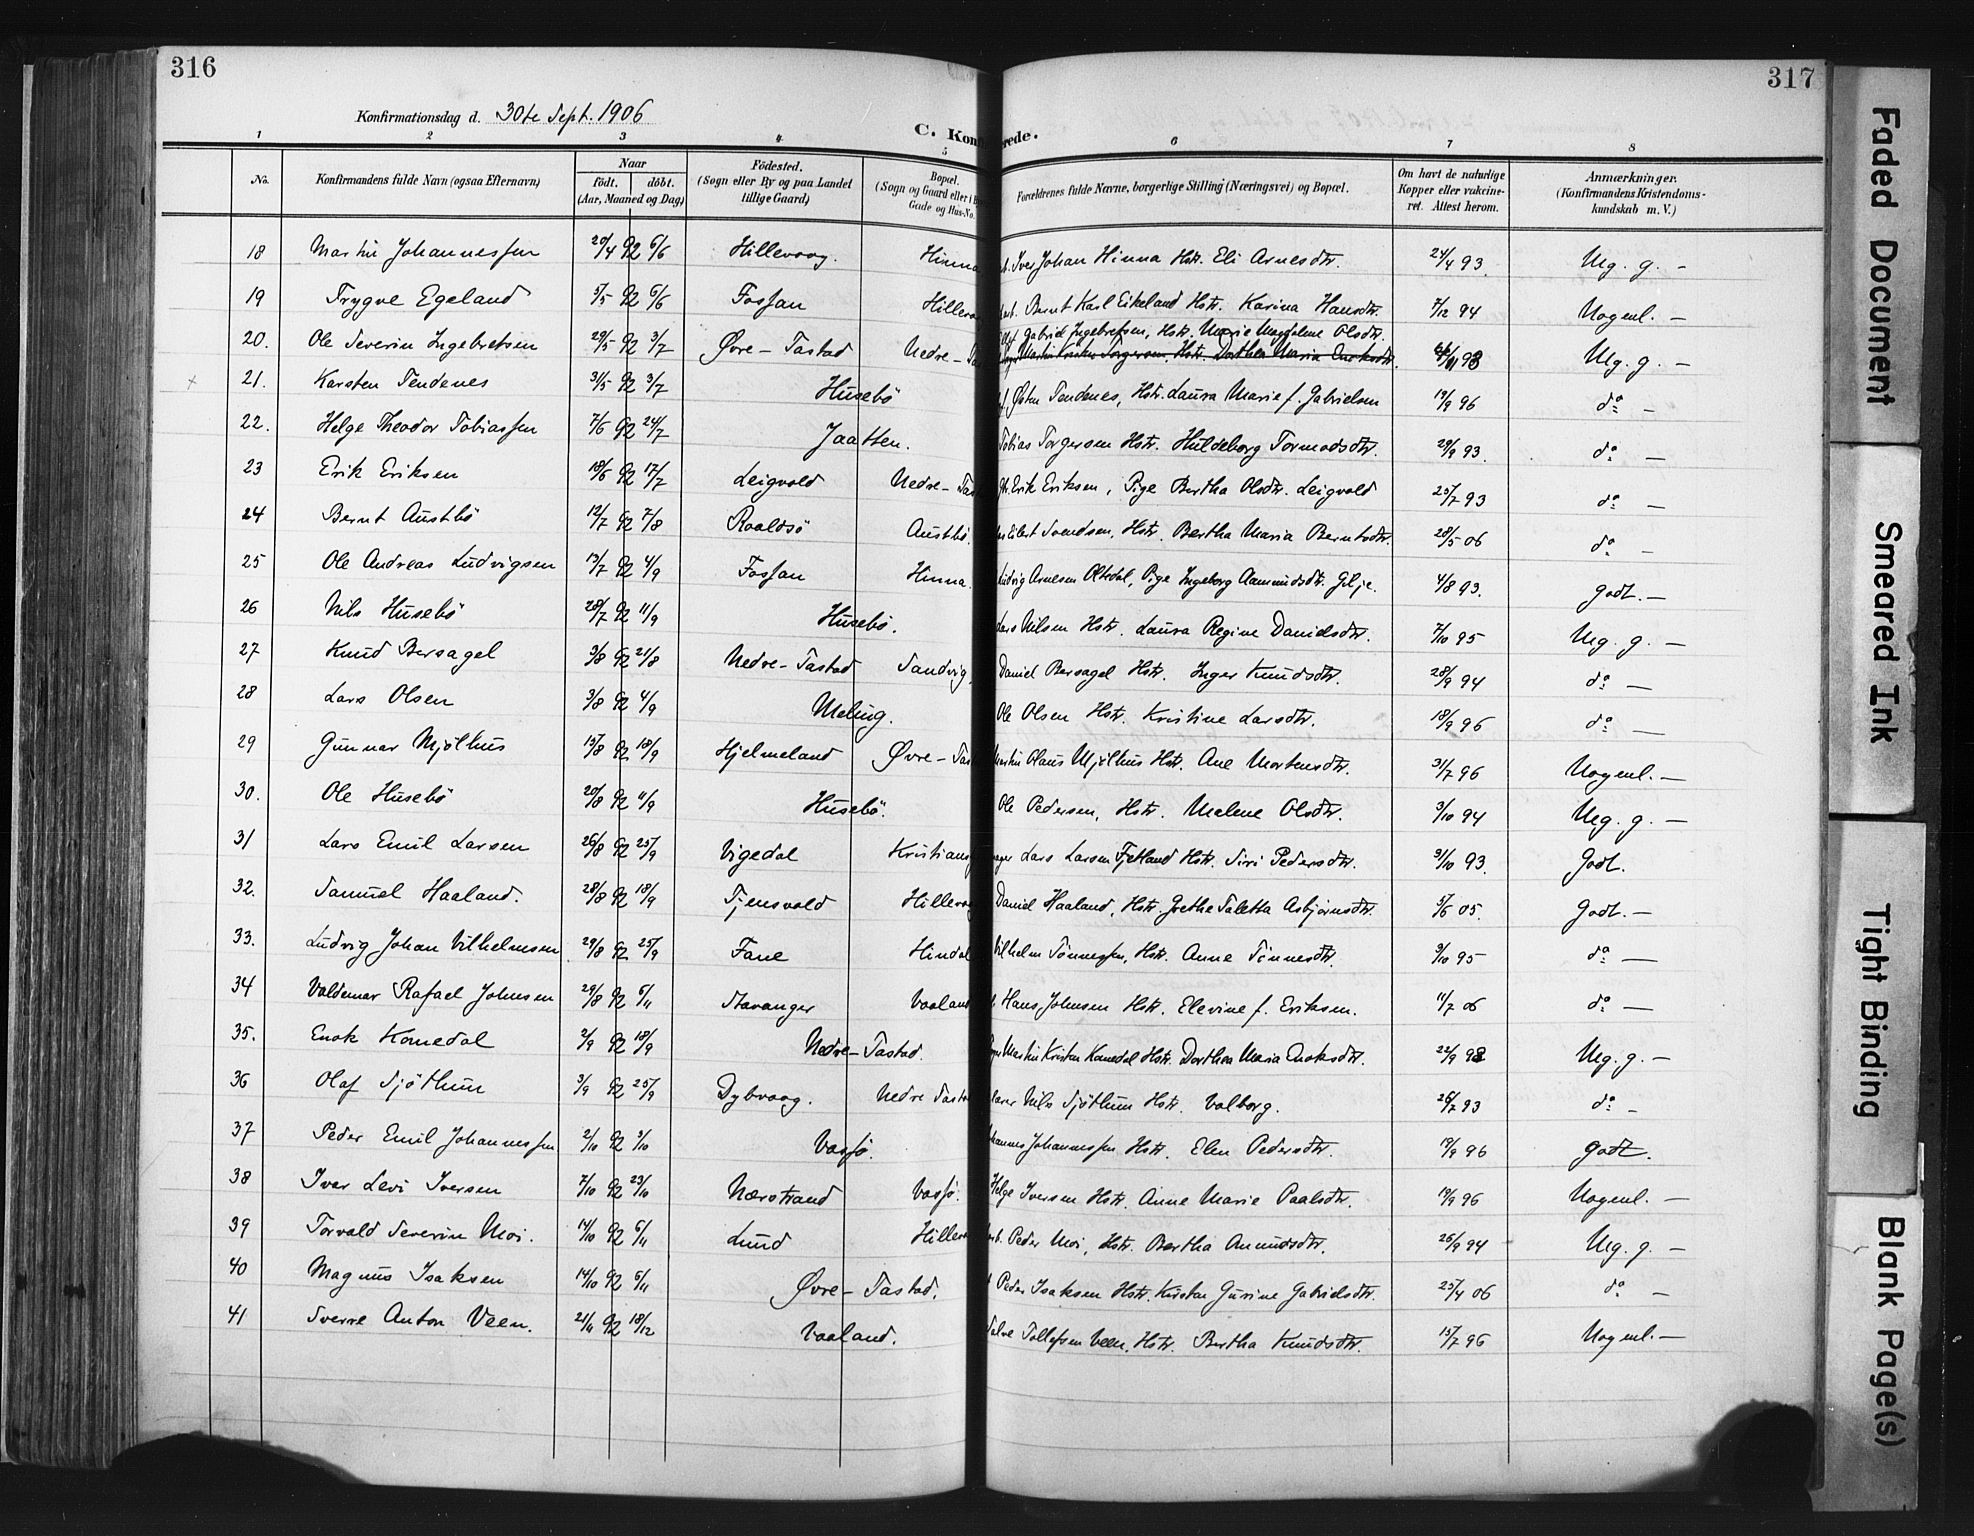 316
317
Konfirmationsdag d. 30te Sept. 1906
C. Konf rede.
1 2 3 4 5 6 7 8
No. Konfirmandens fulde Navn (ogsaa Efternavn) Naar födt. döbt. (Aar, Maaned og Dag) Födested. (Sogn eller By og paa Landet tillige Gaard) Bopæl. (Sogn og Gaard eller i Gade og Hus-No. Forældrenes fulde Navne, borgerlige Stilling (Næringsvei) og Bopæl. Om havt de naturlige Kopper eller vakcineret. Attest herom. Anmærkninger. (Konfirmandens Kristendomskundskab m. V.)
18 Martin Johannessen 20/4 92 6/6 Hillevaag. Hinna Iver Johan Hinna Hstr. Eli Arnesdtr. 24/4 93. Mg. g. -
19 Trygve Egeland 5/5 92 6/6 Fossan Hilleva Bernt Karl Eikeland Hstr. Karina Hansdtr. 7/12 94 Nogenl. -
20. Ole Severin Ingebretsen 29/5 92 3/7 Øvre-Tastad Nedre-Tas Gabriel Ingebretsen, Hstr. Marie Magdalene Olsdtr. Martin Kristen Torgersen, Hstr. Dorthea Maria Enoksdtr. 93 Mg. g. -
21. Karsten Tendenes 31/5 92 3/7 Husebö Østen Tendenes, Hstr. Laura Marie f. Gabrielsen 19/9 96 do -
22. Helge Theodor Tobiassen 7/6 92 24/7 Jaatten. Tobias Torgersen Hstr. Huldeborg Tormodsdtr. 29/9 93. do -
23 Erik Eriksen 18/6 92 17/7 Leigvold Nedre-Tas Erik Eriksen, Pige Bertha Olsdtr. Leigvold 25/7 93 do -
24 Bernt Austbö 12/7 92 7/8 Roaldsö Austbö. Eilert Svendsen, Hstr. Bertha Maria Berntsdtr. 28/5 06 do -
25 Ole Andreas Ludvigsen 13/7 92 4/9 Fossan Hinna. Ludvig Arnesen Oltedal, Pige Ingeborg Aamundsdtr. Gilje. 4/8 93. Godt. -
26 Nils Husebö 28/7 92 11/9 Husebö. Lars Nilsen Hstr. Laura Regine Danielsdtr. 7/10 95 Mg. g. -
27 Knud Bersagel 3/8 92 21/8 Nedre-Tastad Sandvig, Daniel Bersagel Hstr. Inger Knudsdtr. 28/9 94 do -
28 Lars Olsen 3/8 92 4/9 Meling. Ole Olsen Hstr. Kristine Larsdtr. 18/9 96 do -
29 Gunnar Mjölhus 15/8 92 18/9 Hjelmeland Øvre-Tas Martin Olaus Mjölhus Hstr. Ane Mortensdtr. 31/7 96 Nogenl. -
30. Ole Husebö 20/8 92 11/9 Husebö. Ole Pedersen, Hstr. Malene Olsdtr. 3/10 94 Mg. g. -
31 Lars Emil Larsen 26/8 92 25/9 Vigedal Kristians Lars Larsen Fjetland Hstr. Siri Pedersdtr. 31/10 93. Godt.
32. Samuel Haaland. 28/8 92 18/9 Tjensvold Hilleva Daniel Haaland, Hstr. Grethe Taletta Asbjörnsdtr. 5/6 05. Godt. -
33. Ludvig Johan Vilhelmsen 29/8 92 25/9 Fane Hindal Vilhelm Tönnessen, Hstr. Anne Tönnesdtr. 3/10 95 do -
34 Valdemar Rafael Johnsen 29/8 92 6/11 Stavanger Vaaland Hans Johnsen Hstr. Elevine f. Eriksen. 11/7 06 do -
35. Enok Komedal 2/9 92 18/9 Nedre-Tastad. Martin Kristen Komedal Hstr. Dorthea Maria Enoksdtr. 22/9 Mg. g. -
36 Olaf Sjöthun 3/9 92 25/9 Dybvaag. Nedre Tasta Nils Sjöthun Hstr. Valborg. 26/7 93 do -
37 Peder Emil Johannessen 2/10 92 9/10 Vassö. Johannessen Hstr. Elen Pedersdtr. 19/9 96 Godt.
38 Iver Levi Iversen 7/10 92 23/10 Nærstrand Vassö. Helge Iversen Hstr. Anne Marie Paalsdtr. 19/9 96 Nogenl. -
39 Torvald Severin Moi. 14/10 92 6/11 Lund Hilleva Peder Moi, Hstr. Bertha Anundsdtr. 26/9 94 Mg. g. -
40 Magnus Isaksen 14/10 92 6/11 Øvre-Tastad. Peder Isaksen Hstr. Kirsten Gurine Gabrielsdtr. 25/4 06 do -
41 Sverre Anton Veen. 21/11 92 18/12 Vaaland. Salve Tollefsen Veen, Hstr. Bertha Knudsdtr. 15/7 96 Nogenl. -
Faded Document
Smeared Ink
Tight Binding
Blank Page(s)